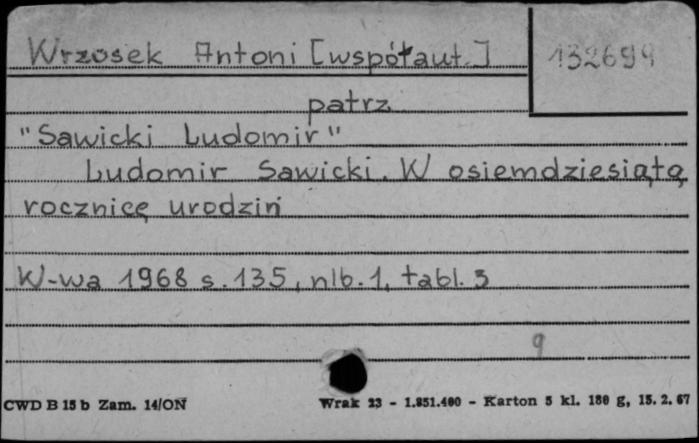 Wrzosek Antoni [współaut.] 132699
patrz
"Sawicki Ludomir"
Ludomir Sawicki. W osiemdziesiątą
rocznicę urodzin
W-wa 1968 s. 135, nlb. 1, tabl. 3
9
CWD B 15 b Zam. 14/ON Wrak 23 - 1.851.400 - Karton 5 kl. 180 g, 15. 2. 67